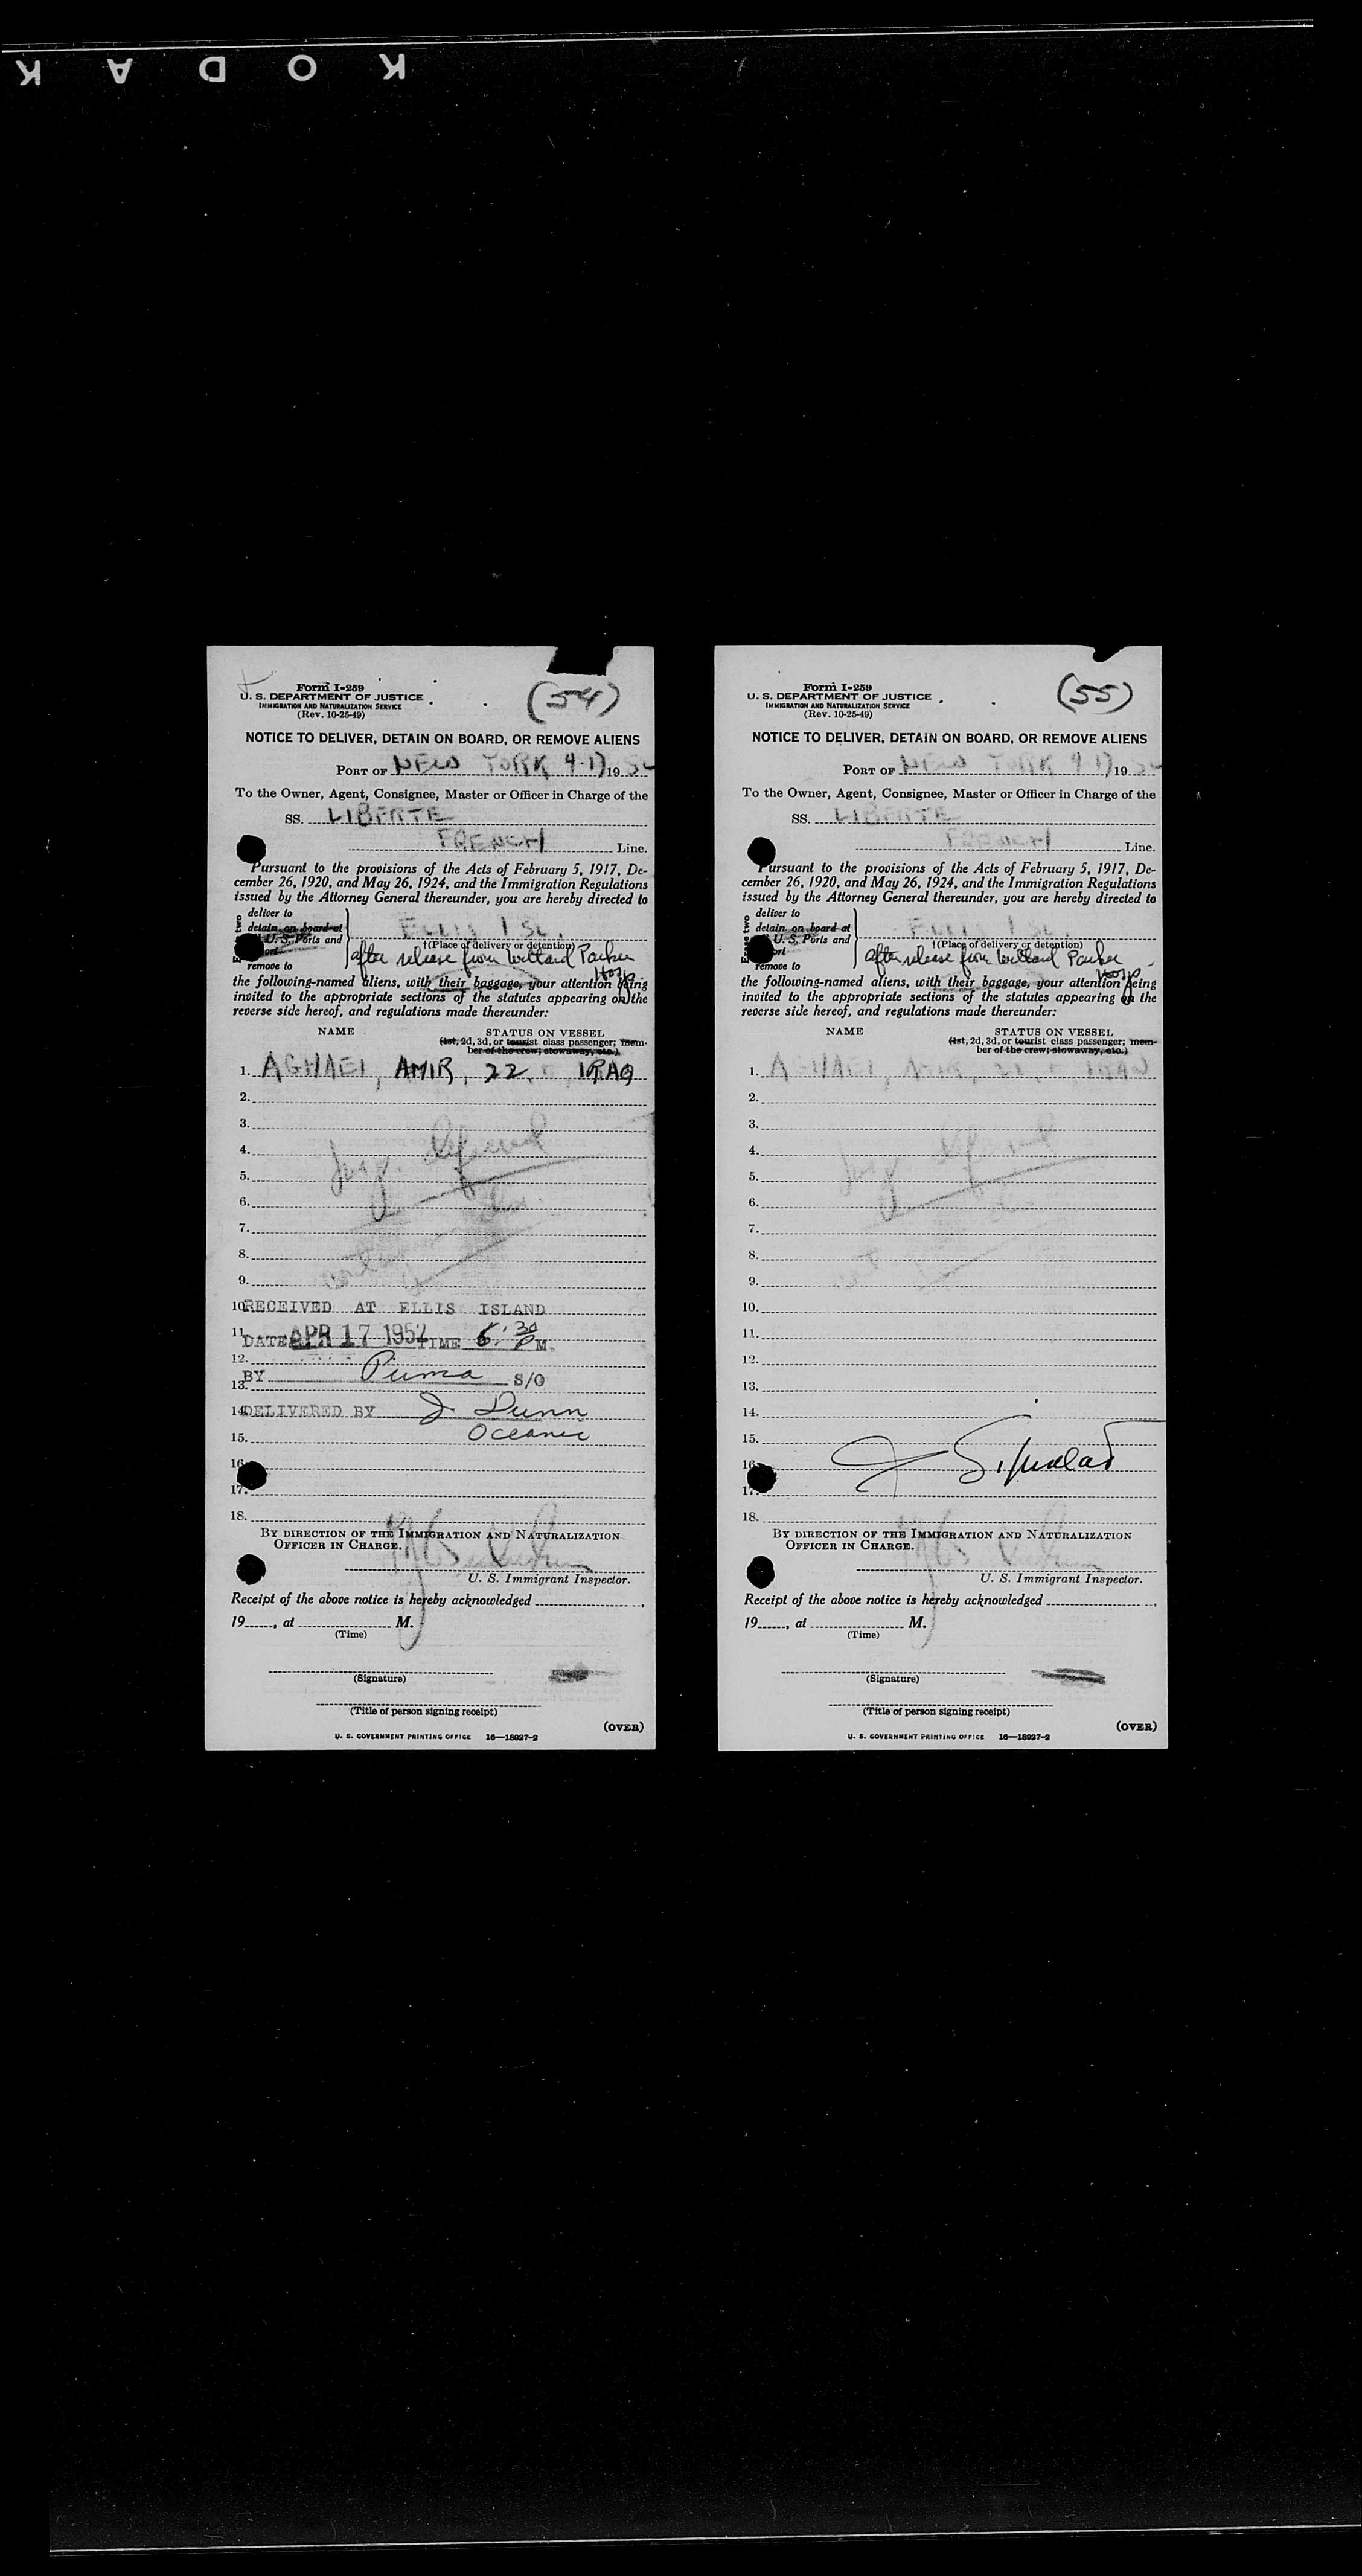 KODAK
Form I-259
U. S. DEPARTMENT OF JUSTICE
IMMIGRATION AND NATURALIZATION SERVICE
(Rev. 10-25-49)
(54)
NOTICE TO DELIVER, DETAIN ON BOARD, OR REMOVE ALIENS
PORT OF NEW YORK 4-17 19 52
To the Owner, Agent, Consignee, Master or Officer in Charge of the
SS. LIBERTE
FRENCH Line.
Pursuant to the provisions of the Acts of February 5, 1917, De-
cember 26, 1920, and May 26, 1924, and the Immigration Regulations
issued by the Attorney General thereunder, you are hereby directed to
deliver to
detain on board at
U. S. Ports and
remove to
ELLIS ISL.
†(Place of delivery or detention)
after release from Willard Parker
Hosp.
the following-named aliens, with their baggage, your attention being
invited to the appropriate sections of the statutes appearing on the
reverse side hereof, and regulations made thereunder:
NAME STATUS ON VESSEL
(1st, 2d, 3d, or tourist class passenger; mem-
ber of the crew; stowaway, etc.)
1. AGHAEI, AMIR, 22, IRAQ
2.
3.
4.
5.
6.
7.
8.
9.
10. RECEIVED AT ELLIS ISLAND
11. DATE APR 17 1952 TIME 6:30 P M.
12.
13. BY Puma S/O
14. DELIVERED BY J. Dunn
15. Oceanic
16.
17.
18.
BY DIRECTION OF THE IMMIGRATION AND NATURALIZATION
OFFICER IN CHARGE.
U. S. Immigrant Inspector.
Receipt of the above notice is hereby acknowledged
19, at M.
(Time)
(Signature)
(Title of person signing receipt)
(OVER)
U. S. GOVERNMENT PRINTING OFFICE 16—18027-2
Form I-259
U. S. DEPARTMENT OF JUSTICE
IMMIGRATION AND NATURALIZATION SERVICE
(Rev. 10-25-49)
(55)
NOTICE TO DELIVER, DETAIN ON BOARD, OR REMOVE ALIENS
PORT OF NEW YORK 4-17 19 52
To the Owner, Agent, Consignee, Master or Officer in Charge of the
SS. LIBERTE
FRENCH Line.
Pursuant to the provisions of the Acts of February 5, 1917, De-
cember 26, 1920, and May 26, 1924, and the Immigration Regulations
issued by the Attorney General thereunder, you are hereby directed to
deliver to
detain on board at
U. S. Ports and
remove to
ELLIS ISL.
†(Place of delivery or detention)
after release from Willard Parker
Hosp.
the following-named aliens, with their baggage, your attention being
invited to the appropriate sections of the statutes appearing on the
reverse side hereof, and regulations made thereunder:
NAME STATUS ON VESSEL
(1st, 2d, 3d, or tourist class passenger; mem-
ber of the crew; stowaway, etc.)
1. AGHAEI, AMIR, 22, IRAQ
2.
3.
4.
5.
6.
7.
8.
9.
10.
11.
12.
13.
14.
15.
16.
17.
18.
BY DIRECTION OF THE IMMIGRATION AND NATURALIZATION
OFFICER IN CHARGE.
U. S. Immigrant Inspector.
Receipt of the above notice is hereby acknowledged
19, at M.
(Time)
(Signature)
(Title of person signing receipt)
(OVER)
U. S. GOVERNMENT PRINTING OFFICE 16—18027-2